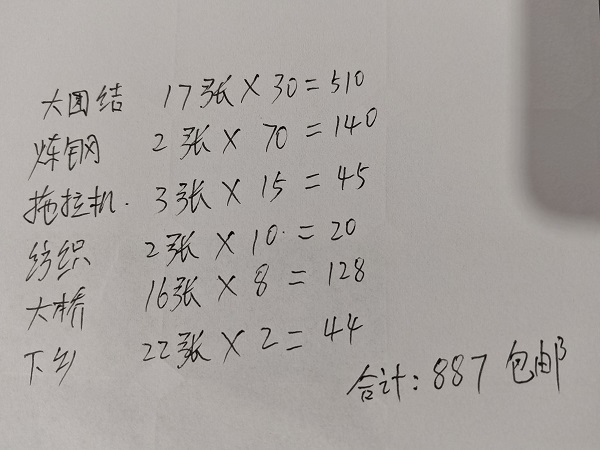 大团结 17张×30=510
炼钢 2张×70=140
拖拉机. 3张×15=45
纺织 2张×10.=20
大桥 16张×8=128
下乡 22张×2=44
合计:887 包邮